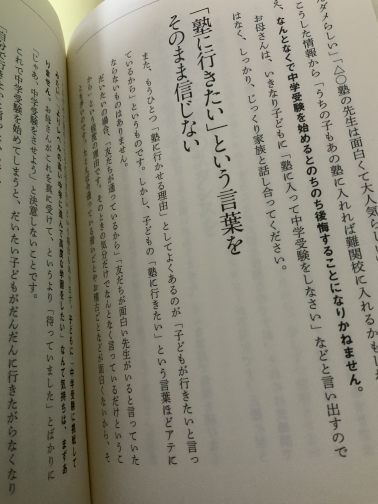 ダメらしい」「△○塾の先生は面白くて大人気らしい
こうした情報から「うちの子もあの塾に入れれば難関校に入れるかも
え、なんとなくで中学受験を始めるとのちのち後悔することになりかねません。
お母さんは、いきなり子どもに「塾に入って中学受験をしなさい」などと言い出すので
はなく、しっかり、じっくり家族と話し合ってください。
「塾に行きたい」という言葉を
そのまま信じない
また、もうひとつ「塾に行かせる理由」としてよくあるのが「子どもが行きたいと言っ
ているから」というものです。しかし、子どもの「塾に行きたい」という言葉ほどアテに
ならないものはありません。
だいたいの場合、「友だちが通っているから」「友だちが面白い先生がいると言っていた
から」という程度の理由です。そのときの気分だけでなんとなく言っているだけというこ
りません。お母さんがこれを真に受けて、というより「待っていました」とばかりに
「じゃあ、中学受験をさせよう」と決意しないことです。
これで中学受験を始めてしまうと、だいたい子どもがだんだんに行きたがらなくなり